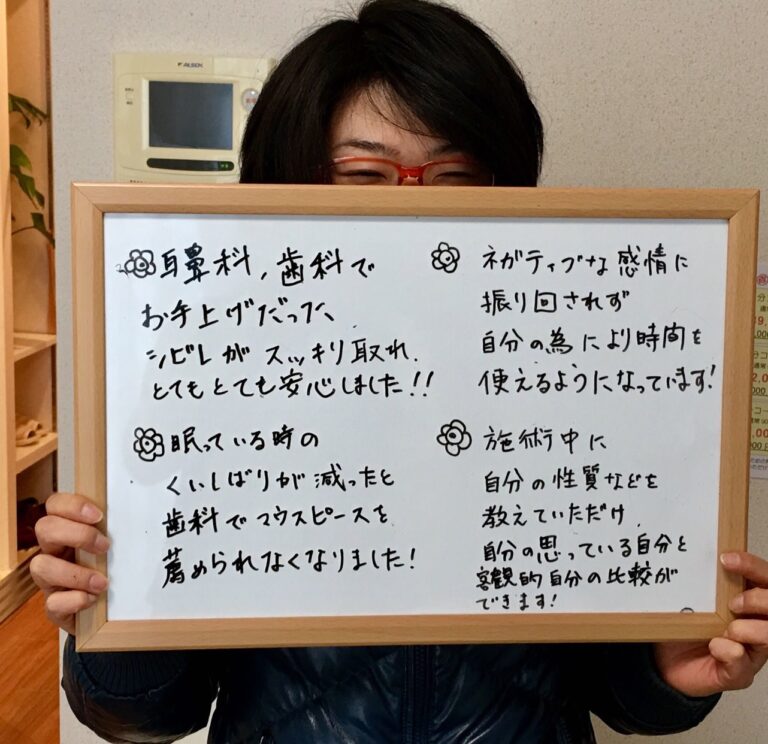 ALSOK
耳鼻科、歯科で
お手上げだった、
シビレがスッキリ取れ、
とてもとても安心しました!!
眠っている時の
くいしばりが減ったと
歯科でマウスピースを
薦められなくなりました!
ネガティブな感情に
振り回されず
自分の為により時間を
使えるようになっています!
施術中に
自分の性質などを
教えていただけ、
自分の思っている自分と
客観的自分の比較が
できます!